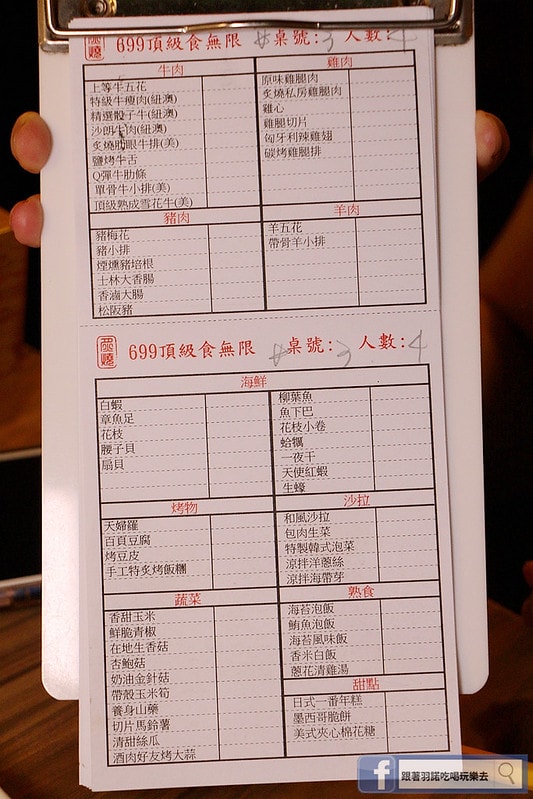 炙燒 699頂級食無限 #桌號:3 人數:4
牛肉
上等牛五花
特級牛瘦肉(紐澳)
精選骰子牛(紐澳)
沙朗牛肉(紐澳)
炙燒肋眼牛排(美)
鹽烤牛舌
Q彈牛肋條
單骨牛小排(美)
頂級熟成雪花牛(美)
雞肉
原味雞腿肉
炙燒私房雞腿肉
雞心
雞腿切片
匈牙利辣雞翅
碳烤雞腿排
豬肉
豬梅花
豬小排
煙燻豬培根
士林大香腸
香滷大腸
松阪豬
羊肉
羊五花
帶骨羊小排
炙燒 699頂級食無限 #桌號:3 人數:4
海鮮
白蝦
章魚足
花枝
腰子貝
扇貝
柳葉魚
魚下巴
花枝小卷
蛤蠣
一夜干
天使紅蝦
生蠔
烤物
天婦羅
百頁豆腐
烤豆皮
手工特炙烤飯糰
沙拉
和風沙拉
包肉生菜
特製韓式泡菜
涼拌洋蔥絲
涼拌海帶芽
蔬菜
香甜玉米
鮮脆青椒
在地生香菇
杏鮑菇
奶油金針菇
帶殼玉米筍
養身山藥
切片馬鈴薯
清甜絲瓜
酒肉好友烤大蒜
熟食
海苔泡飯
鮪魚泡飯
海苔風味飯
香米白飯
蔥花清雞湯
甜點
日式一番年糕
墨西哥脆餅
美式夾心棉花糖
f 跟著羽諾吃喝玩樂去